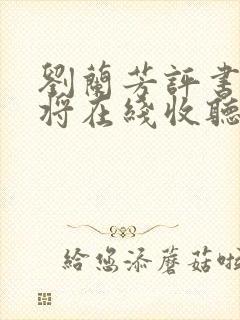 劉蘭芳評書
將在綫收聽
給您添蘑菇啦